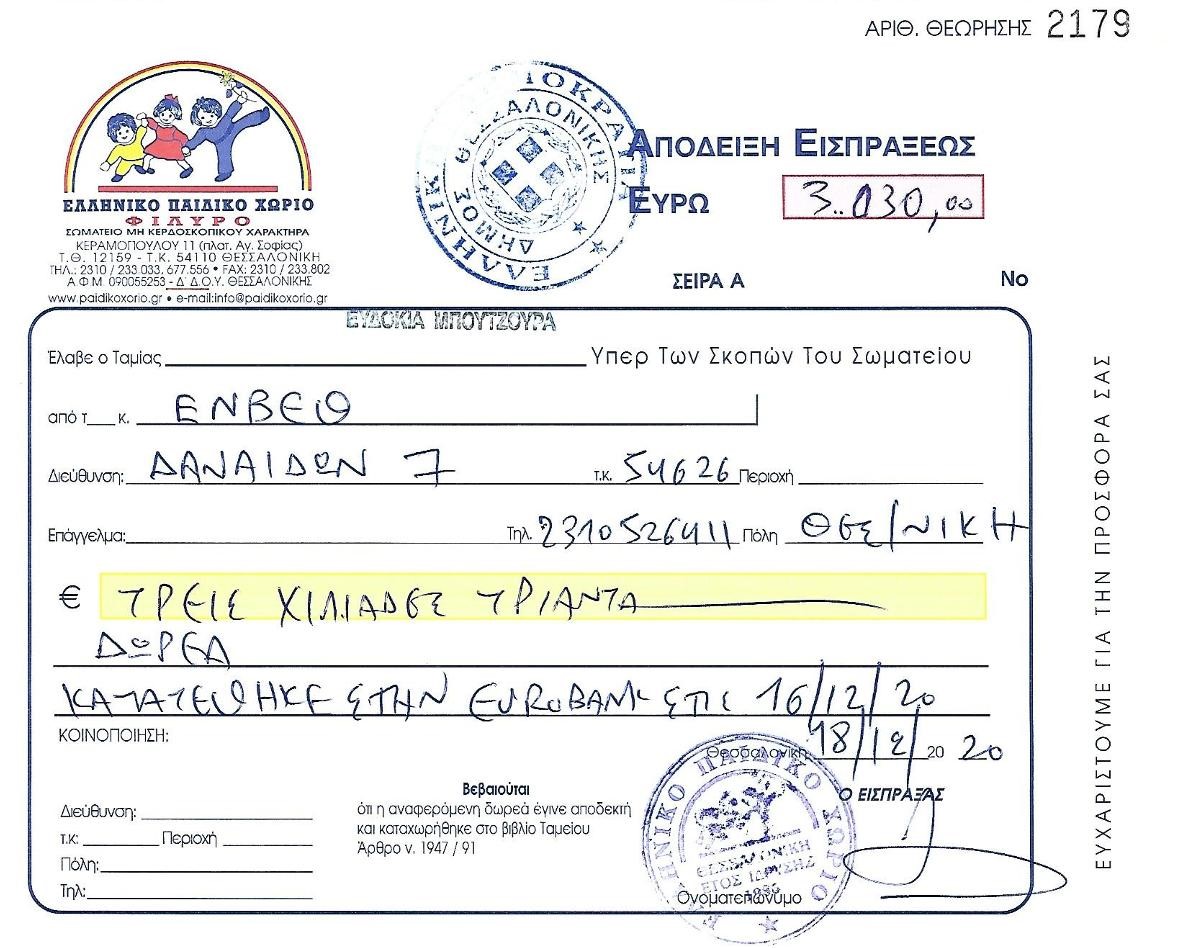 ΑΡΙΘ. ΘΕΩΡΗΣΗΣ 2179
ΕΛΛΗΝΙΚΟ ΠΑΙΔΙΚΟ ΧΩΡΙΟ
ΦΙΛΥΡΟ
ΣΩΜΑΤΕΙΟ ΜΗ ΚΕΡΔΟΣΚΟΠΙΚΟΥ ΧΑΡΑΚΤΗΡΑ
ΚΕΡΑΜΟΠΟΥΛΟΥ 11 (πλατ. Αγ. Σοφίας)
Τ.Θ. 12159 - Τ.Κ. 54110 ΘΕΣΣΑΛΟΝΙΚΗ
ΤΗΛ.: 2310 / 233.033, 677.556 • FAX: 2310 / 233.802
Α Φ Μ. 090055253 - Δ΄ Δ.Ο.Υ. ΘΕΣΣΑΛΟΝΙΚΗΣ
www.paidikoxorio.gr • e-mail:info@paidikoxorio.gr
ΔΗΜΟΣ ΘΕΣΣΑΛΟΝΙΚΗΣ
ΑΠΟΔΕΙΞΗ ΕΙΣΠΡΑΞΕΩΣ
ΕΥΡΩ 3.030,00
ΣΕΙΡΑ Α Νο
ΕΥΔΟΚΙΑ ΜΠΟΥΤΖΟΥΡΑ
Έλαβε ο Ταμίας Υπερ Των Σκοπών Του Σωματείου
από τ κ. ΕΝΒΕΘ
Διεύθυνση: ΔΑΝΑΙΔΩΝ 7 τ.κ. 54626 Περιοχή
Επάγγελμα: Τηλ. 2310526411 Πόλη ΘΕΣ/ΝΙΚΗ
€ ΤΡΕΙΣ ΧΙΛΙΑΔΕΣ ΤΡΙΑΝΤΑ
ΔΩΡΕΑ
ΚΑΤΑΤΕΘΗΚΕ ΣΤΗΝ EUROBANK ΣΤΙΣ 16/12/20
ΚΟΙΝΟΠΟΙΗΣΗ:
Θεσσαλονίκη 18/12/20 20
Ο ΕΙΣΠΡΑΞΑΣ
Διεύθυνση:
τ.κ: Περιοχή
Πόλη:
Τηλ:
Βεβαιούται
ότι η αναφερόμενη δωρεά έγινε αποδεκτή
και καταχωρήθηκε στο βιβλίο Ταμείου
Άρθρο ν. 1947 / 91
ΕΛΛΗΝΙΚΟ ΠΑΙΔΙΚΟ ΧΩΡΙΟ
ΘΕΣΣΑΛΟΝΙΚΗ
ΕΤΟΣ ΙΔΡΥΣΗΣ
Ονοματεπώνυμο
ΕΥΧΑΡΙΣΤΟΥΜΕ ΓΙΑ ΤΗΝ ΠΡΟΣΦΟΡΑ ΣΑΣ